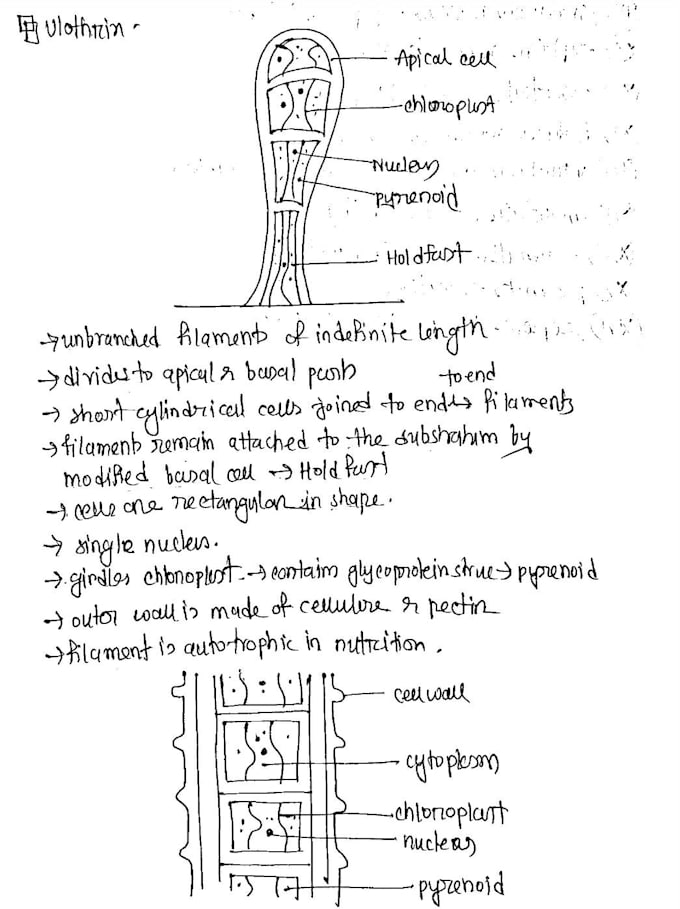 Ulothrin -
Apical cell
chloroplast
Nucleus
pyrenoid
Holdfast
→ unbranched filament of indefinite length
→ divides to apical & basal parts
→ short cylindrical cells joined to end to end → filaments
→ filament remain attached to the substratum by
modified basal cell → Hold fast
→ cells are rectangular in shape.
→ single nucleus.
→ girdles chloroplast → contain glycoprotein struc → pyrenoid
→ outer wall is made of cellulose & pectin
→ filament is autotrophic in nutrition.
cell wall
cytoplasm
chloroplast
nucleas
pyrenoid